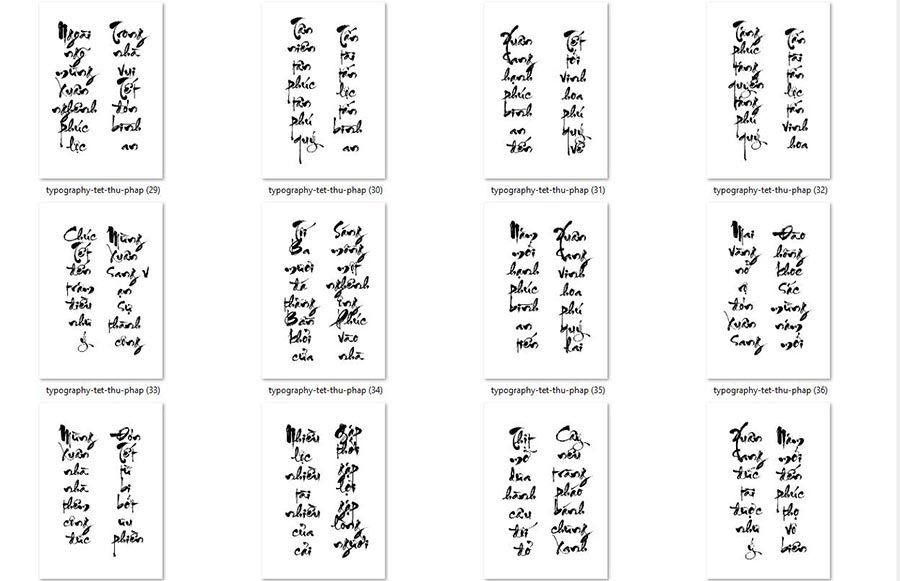 Ngoài ngõ mừng Xuân nghênh phúc lộc
Trong nhà vui Tết đón bình an
typography-tet-thu-phap (29)
Tân niên tân phúc tân phú quý
Tấn tài tấn lộc tấn bình an
typography-tet-thu-phap (30)
Xuân sang hạnh phúc bình an đến
Tết tới vinh hoa phú quý về
typography-tet-thu-phap (31)
Tăng phúc tăng quyền tăng phú quý
Tấn tài tấn lộc tấn vinh hoa
typography-tet-thu-phap (32)
Chúc Tết đến trăm điều như ý
Mừng Xuân Sang Vạn sự thành công
typography-tet-thu-phap (33)
Tối Ba mươi đá thằng Bần khỏi cửa
Sáng mồng một nghênh ông Phúc vào nhà
typography-tet-thu-phap (34)
Năm mới hạnh phúc bình an tiến
Xuân sang vinh hoa phú quý lai
typography-tet-thu-phap (35)
Mai vàng nở rộ đón Xuân Sang
Đào hồng khoe sắc mừng năm mới
typography-tet-thu-phap (36)
Mừng Xuân nhà nhà thêm công đức
Đón Tết từ bi bớt ưu phiền
Nhiều lộc nhiều tài nhiều của cải
Gặp thời gặp lợi gặp lòng người
Thịt mỡ dưa hành câu đối đỏ
Cây nêu tràng pháo bánh chưng Xanh
Xuân sang đức tài được như ý
Năm mới đến phúc thọ vô biên